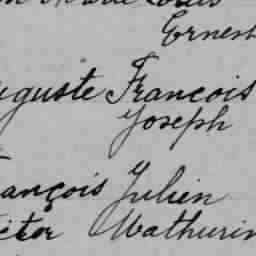 Ernest
Auguste François
Joseph
François Julien
Victor Mathurin